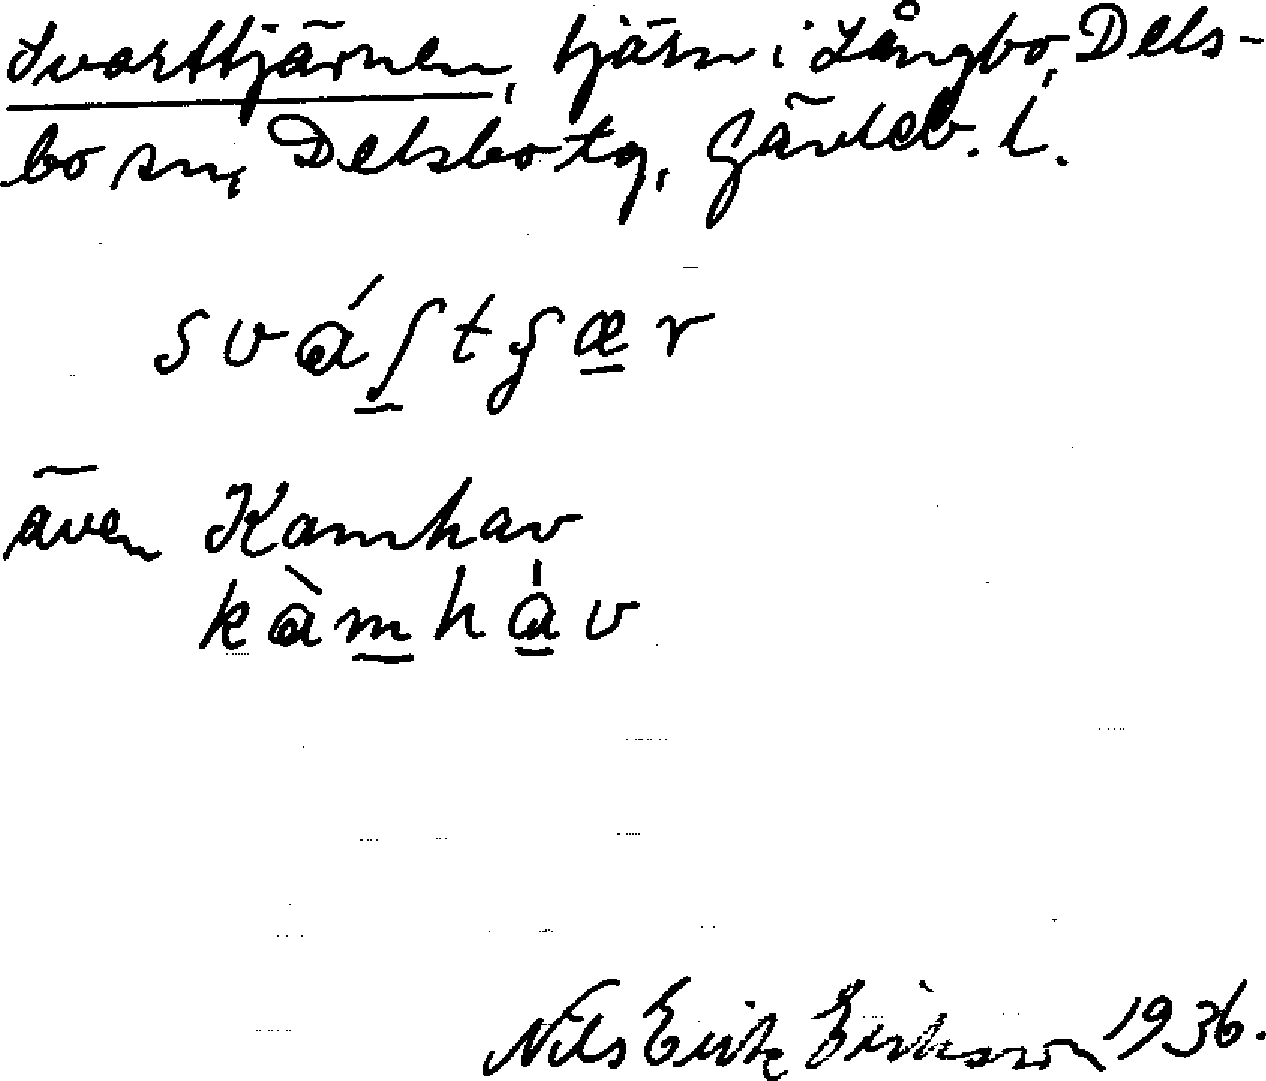 Svarttjärnen, tjärn i Långbo, Dels-
bo sn, Delsbo tg, Gävleb. l.
svá̀ʃtʃær
även Kamhav
kàmhàv
Nils Erik Erikson 1936.